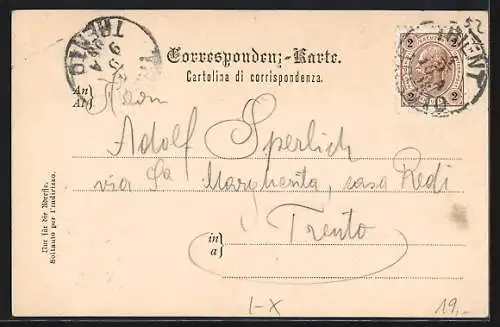 Correspondenz-Karte.
Cartolina di corrispondenza.
An
A
Herrn
Adolf Sperlich
via Sa Margherita, casa Redi
Trento
in
a
Nur für die Adresse.
Soltanto per l'indirizzo.
TRENTO
TRIENT
2 2
2 2
I-X
19,-